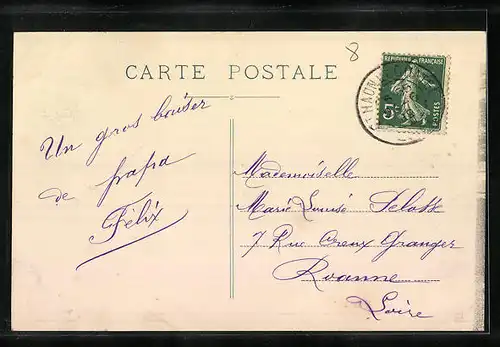 8
CARTE POSTALE
REPUBLIQUE FRANÇAISE
5c
POSTES
Un gros baiser
de papa
Félix
Mademoiselle
Marie Louise
7 Rue Creux Granger
Roanne
Loire